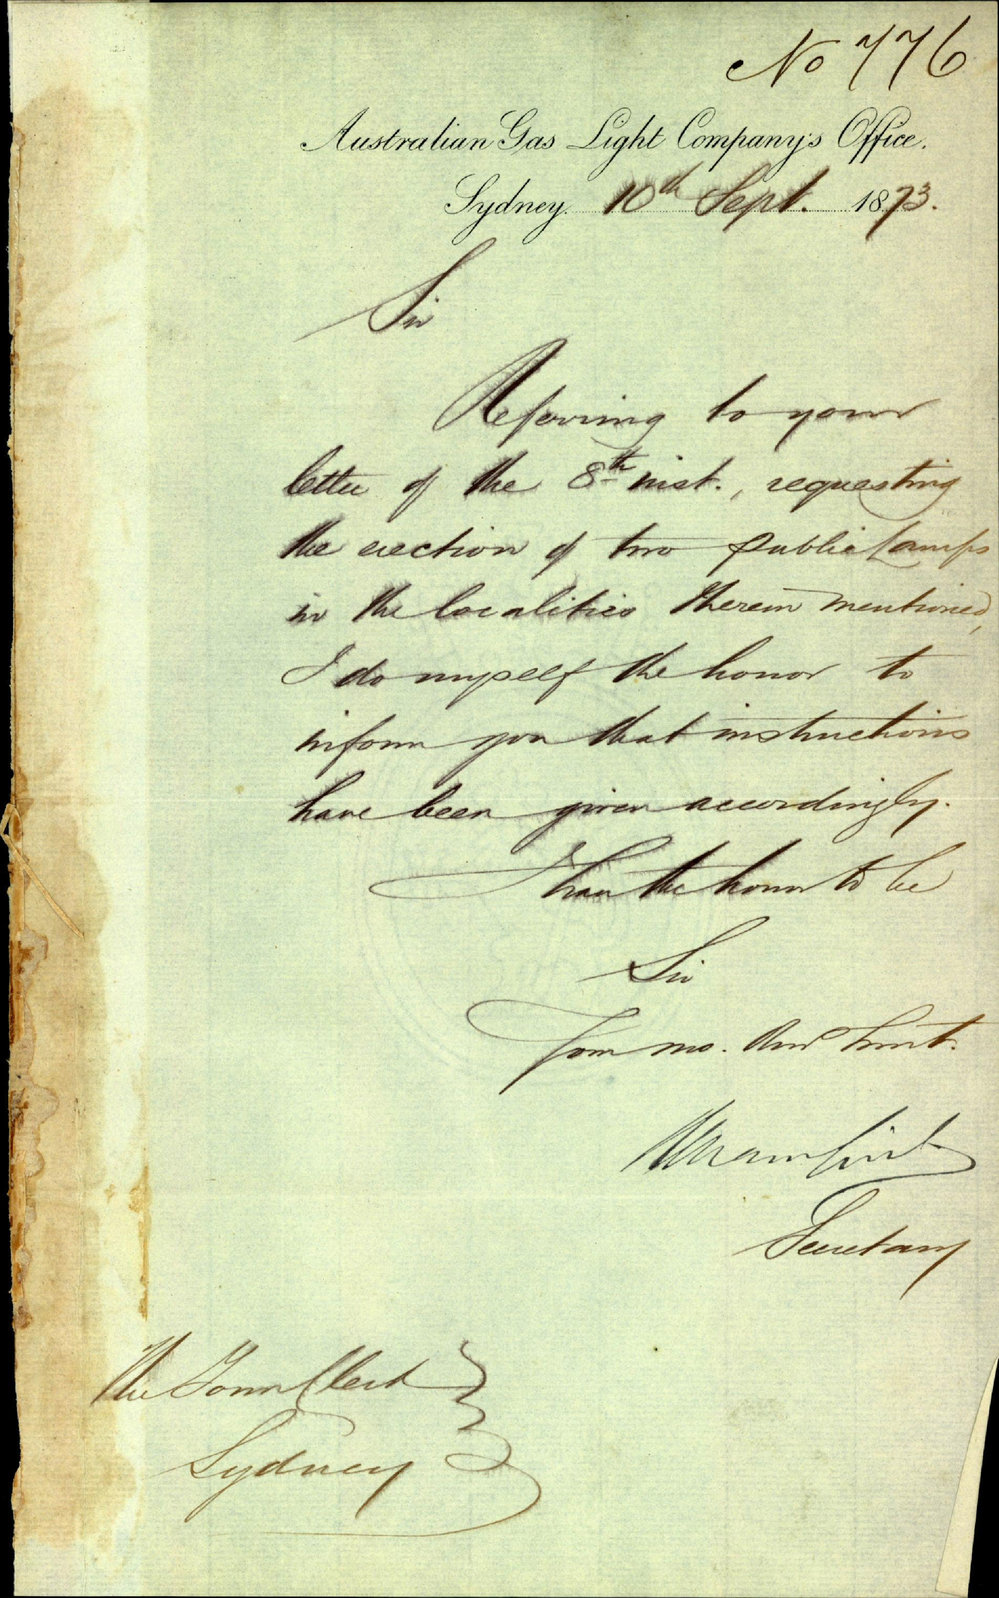 No 776
Australian Gas Light Company's Office.
Sydney. 10th Sept. 1873.
Sir
Referring to your
letter of the 8th inst., requesting
the erection of two public Lamps
in the localities therein mentioned,
I do myself the honor to
inform you that instructions
have been given accordingly.
I have the honor to be
Sir
Your mo. Obed Servt.
Secretary
The Town Clerk
Sydney